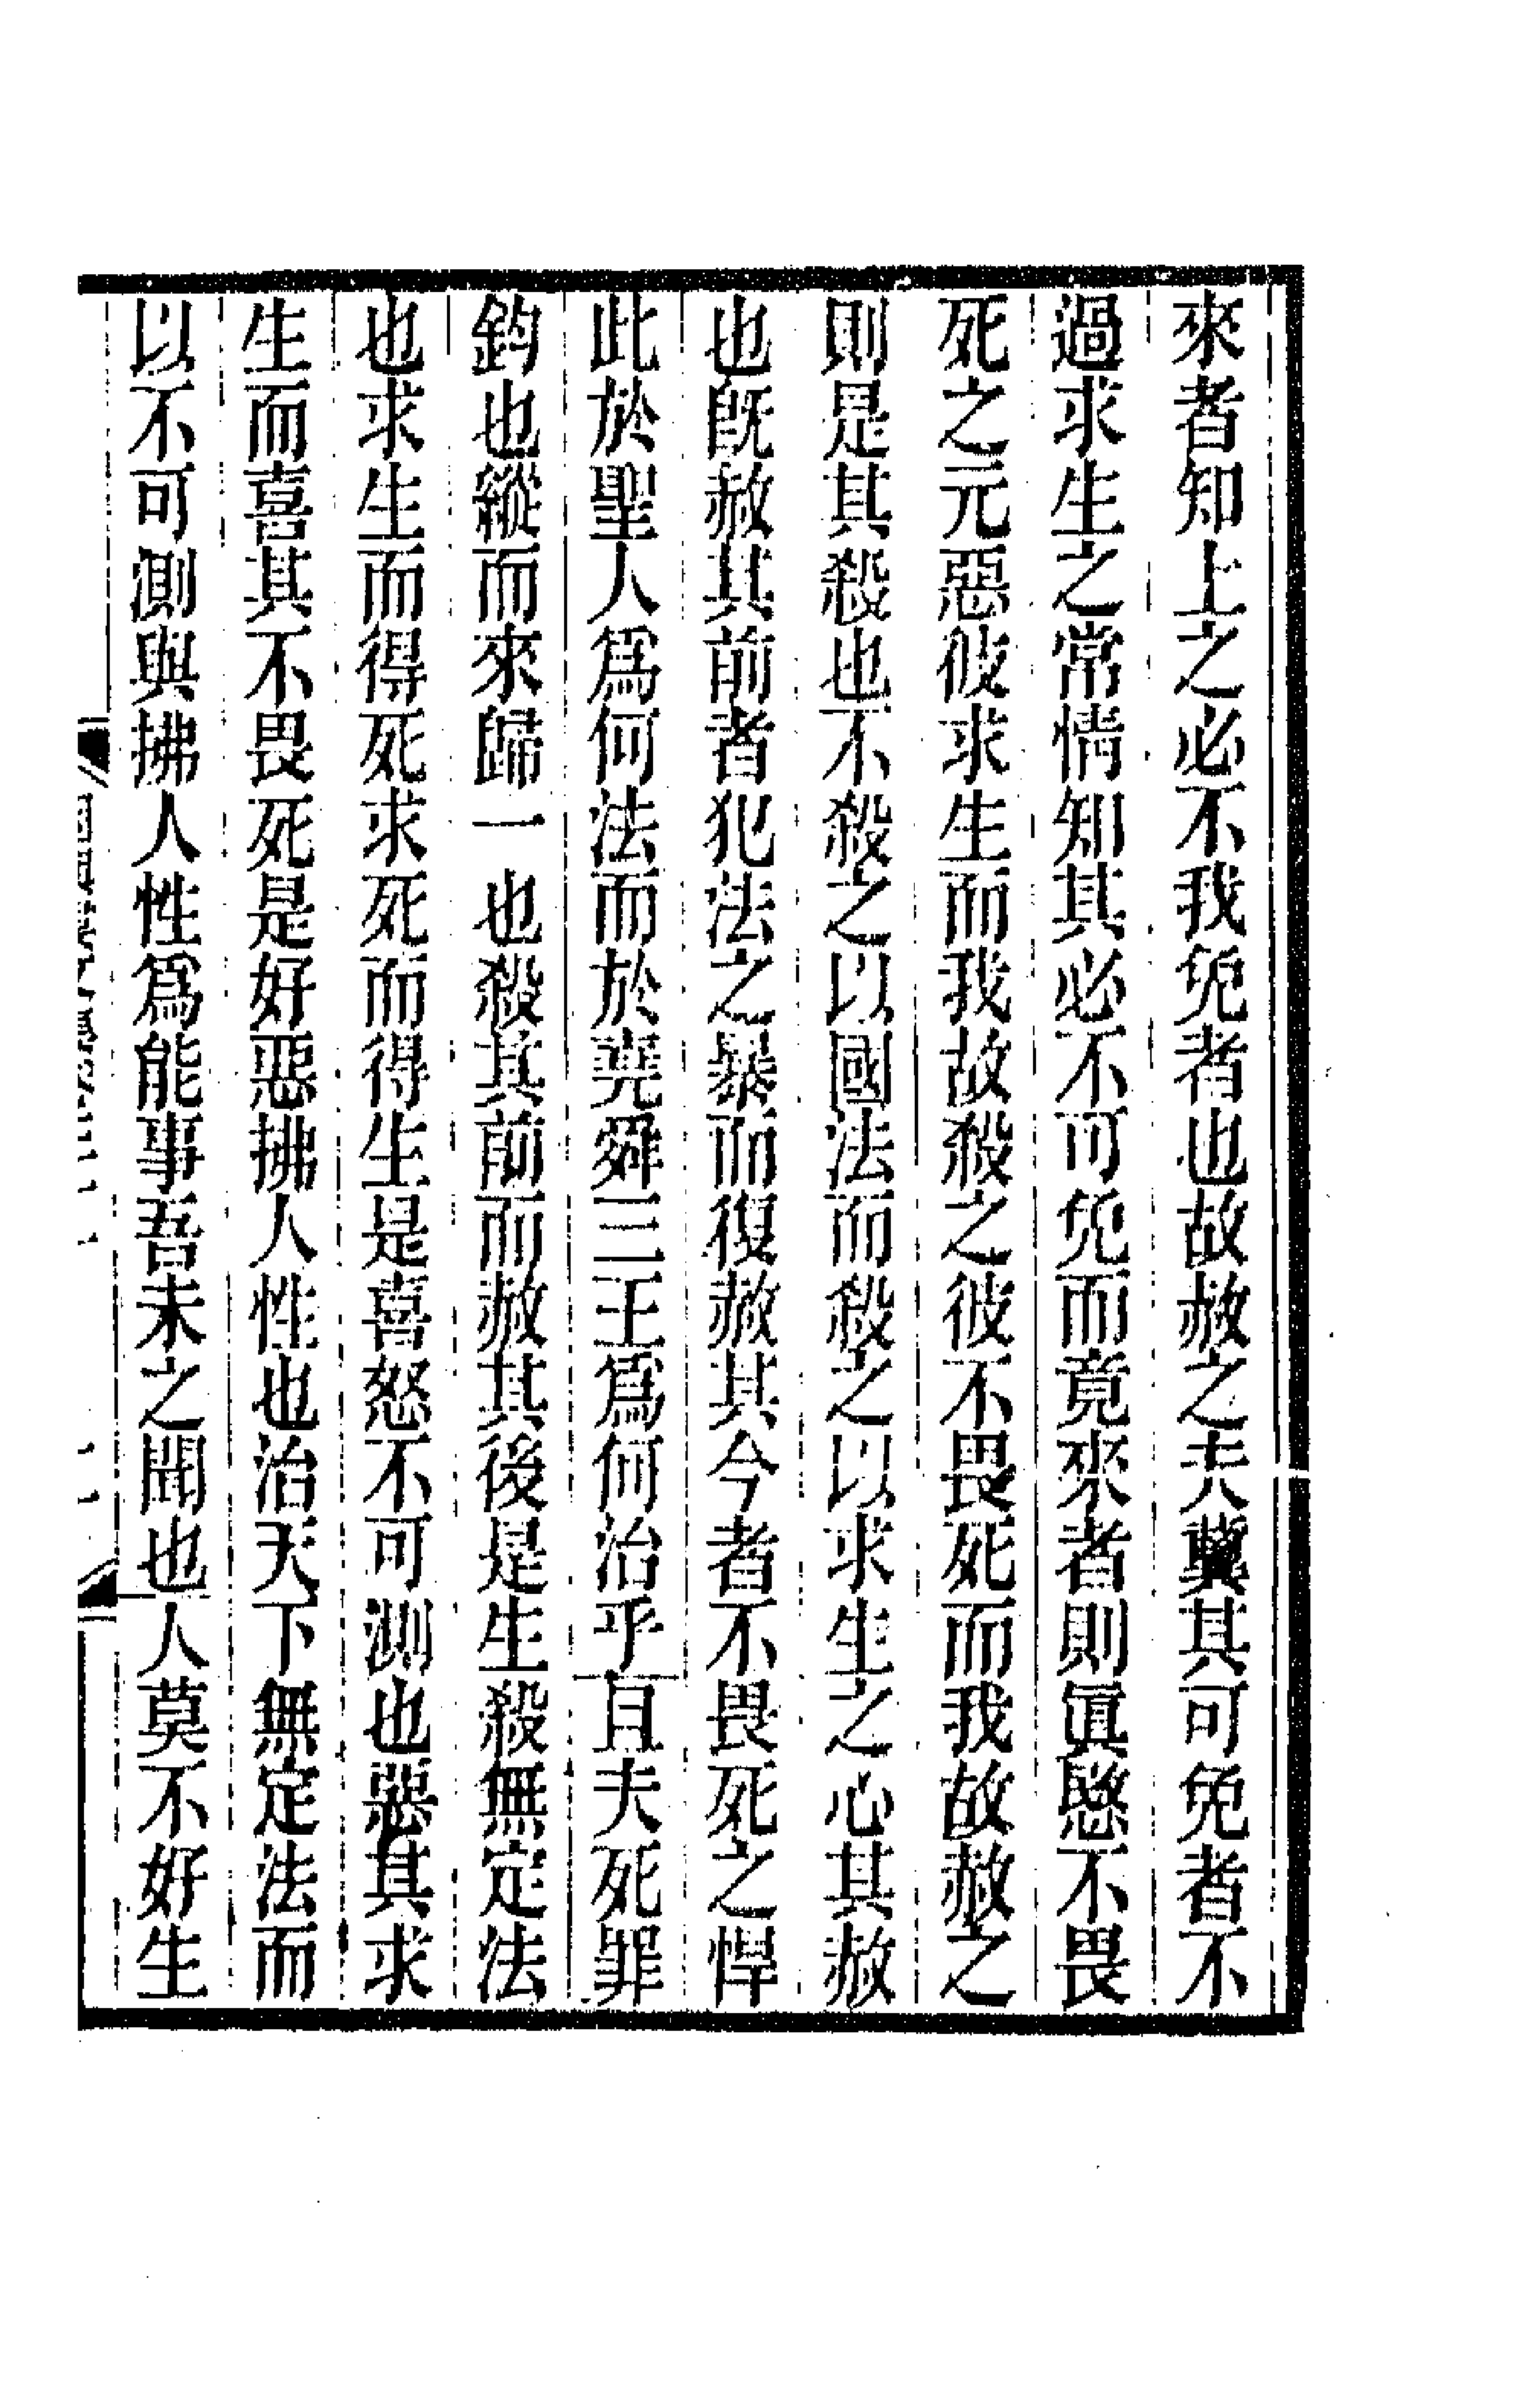 來者知上之必不我免者也故赦之夫冀其可免者不
過求生之常情知其必不可免而竟來者則眞愍不畏
死之元惡彼求生而我故殺之彼不畏死而我故赦之
則是其殺也不殺之以國法而殺之以求生之心其赦
也旣赦其前者犯法之暴而復赦其今者不畏死之悍
此於聖人爲何法而於堯舜三王爲何治乎且夫死罪
鈞也縱而來歸一也殺其前而赦其後是生殺無定法
也求生而得死求死而得生是喜怒不可測也惡其求
生而喜其不畏死是好惡拂人性也治天下無定法而
以不可測與拂人性爲能事吾未之聞也人莫不好生